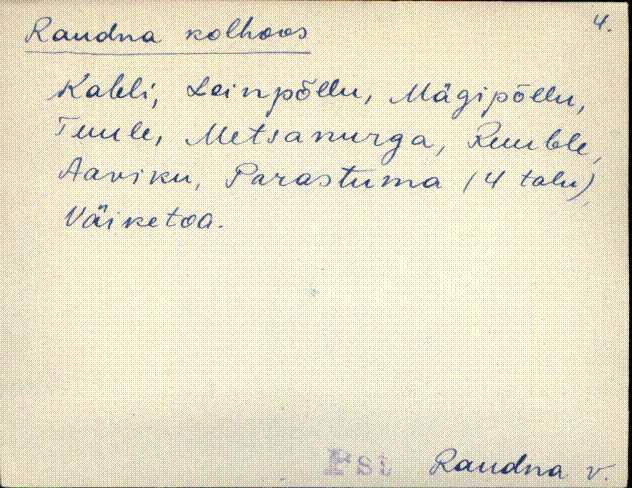 Raudna kolhoos 4.
Kabli, Leinpõllu, Mägipõllu,
Tuule, Metsanurga, Ruuble,
Aaviku, Parastuma (4 talu),
Väiketoa.
Pst Raudna v.